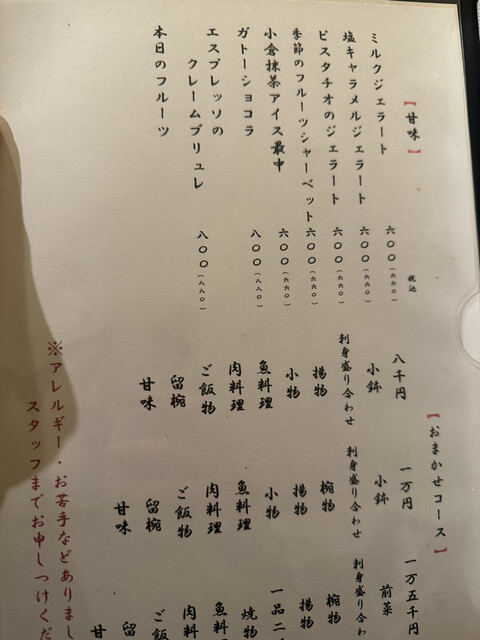 【甘味】
税込
ミルクジェラート 六〇〇(六六〇)
塩キャラメルジェラート 六〇〇(六六〇)
ピスタチオのジェラート 六〇〇(六六〇)
季節のフルーツシャーベット 六〇〇(六六〇)
小倉抹茶アイス最中 六〇〇(六六〇)
ガトーショコラ 八〇〇(八八〇)
エスプレッソの
クレームブリュレ 八〇〇(八八〇)
本日のフルーツ
【おまかせコース】
八千円
小鉢
刺身盛り合わせ
揚物
小物
魚料理
肉料理
ご飯物
留椀
甘味
一万円
小鉢
刺身盛り合わせ
椀物
揚物
小物
魚料理
肉料理
ご飯物
留椀
甘味
一万五千円
前菜
刺身盛り合わ
椀物
揚物
一品二
焼物
魚料
肉料
ご飯
留
甘
※アレルギー・お苦手などありまし
スタッフまでお申しつけくだ